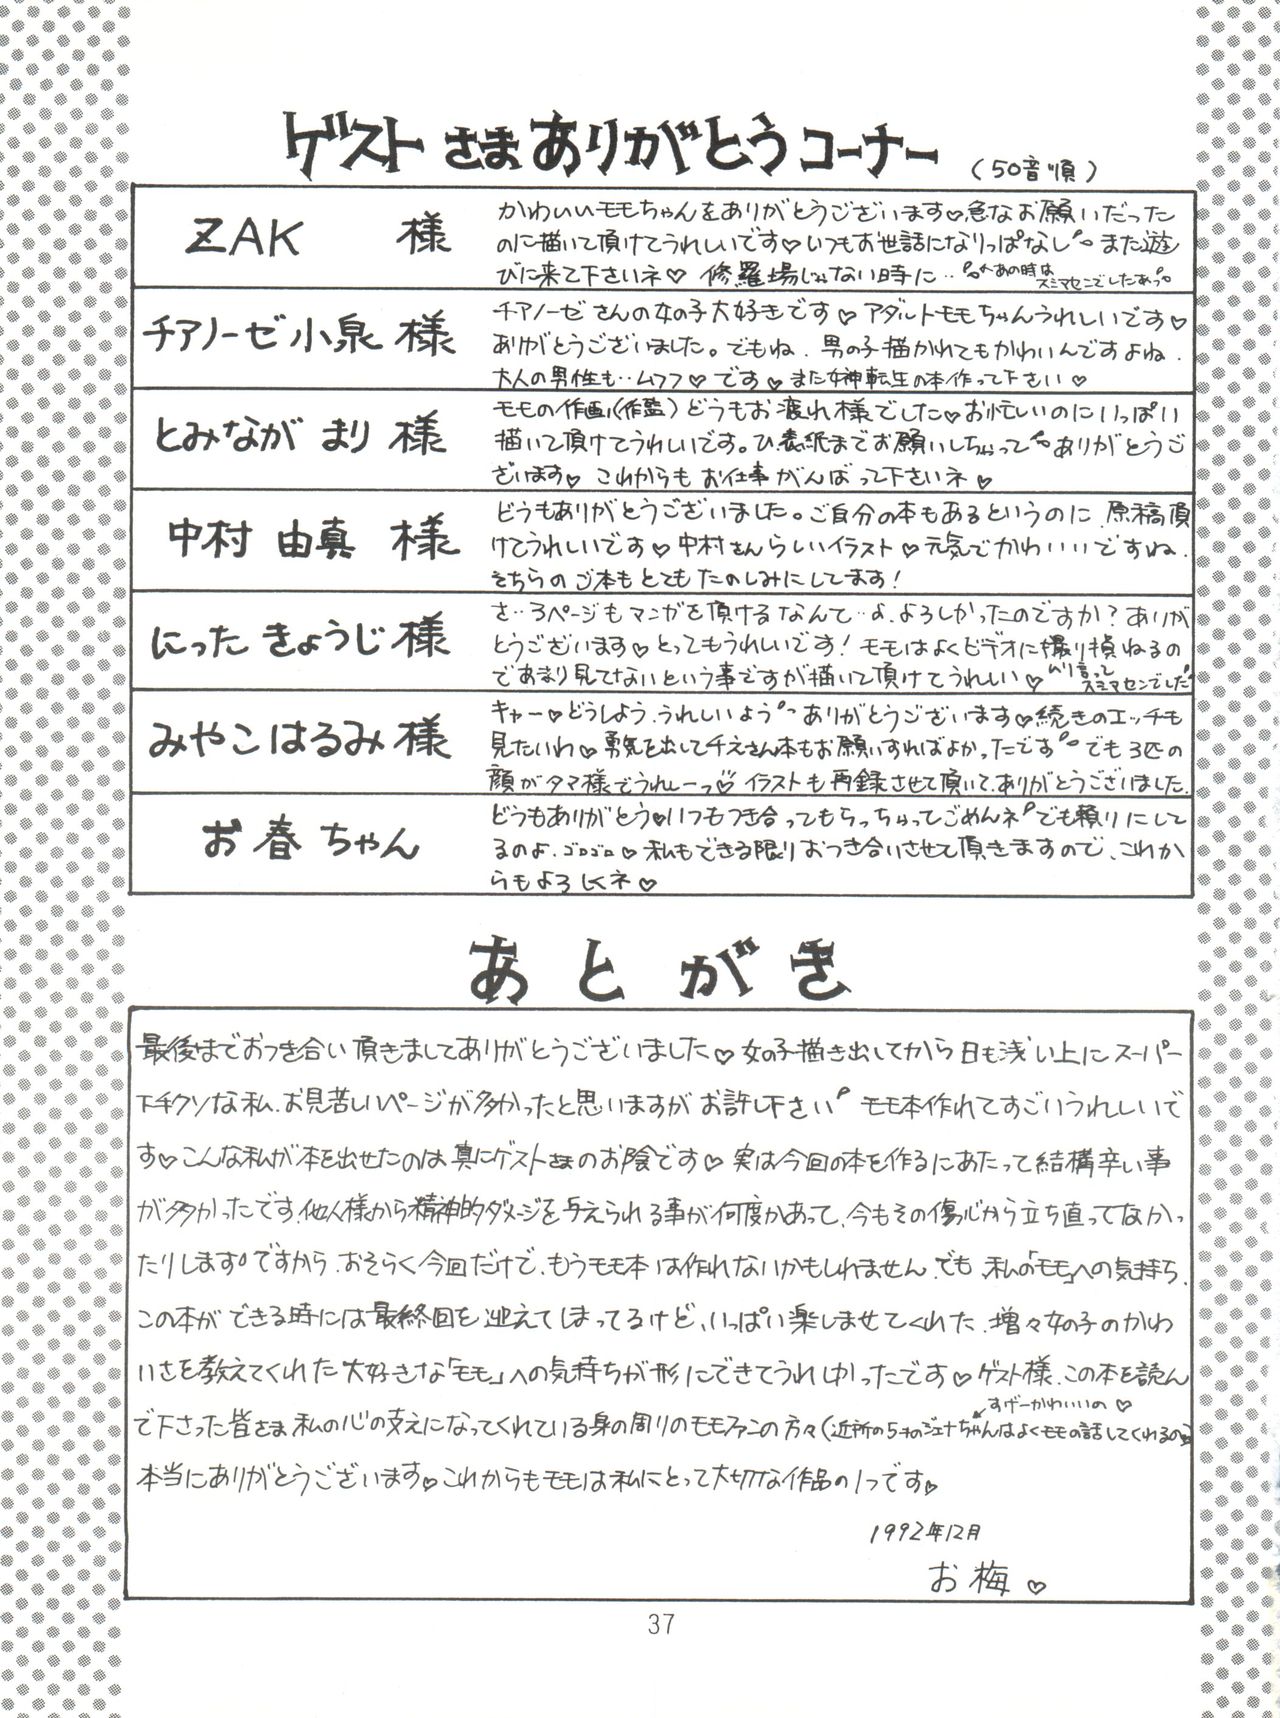 ゲストさまありがとうコーナー (50音順)
ZAK 様
かわいいモモちゃんをありがとうございます♡急なお願いだった
のに描いて頂けてうれしいです♡いつもお世話になりっぱなし また遊
びに来て下さいネ♡ 修羅場じゃない時に‥ あの時は
スミマセンでしたあっ
チアノーゼ小泉 様
チアノーゼさんの女の子大好きです♡アダルトモモちゃんうれしいです♡
ありがとうございました。でもね、男の子描かれてもかわいんですよね、
大人の男性も‥ムフフ♡です♡また女神転生の本作って下さい♡
とみなが まり 様
モモの作画(作監)どうもお疲れ様でした♡お忙しいのにいっぱい
描いて頂けてうれしいです。ひ、表紙までお願いしちゃって ありがとうご
ざいます♡ これからもお仕事がんばって下さいネ♡
中村 由真 様
どうもありがとうございました。ご自分の本もあるというのに、原稿頂
けてうれしいです♡中村さんらしいイラスト♡元気でかわいいですね、
そちらのご本もとてもたのしみにしてます!
にった きょうじ 様
さ‥3ページもマンガを頂けるなんて‥よ、よろしかったのですか?ありが
とうございます♡とってもうれしいです! モモはよくビデオに撮り損ねるの
であまり見てないという事ですが描いて頂けてうれしい♡ ムリ言って
スミマセンでした
みやこ はるみ 様
キャー♡どうしよう、うれしいよう ありがとうございます♡続きのエッチも
見たいわ♡勇気を出してチえさん本もお願いすればよかったです でも3匹の
顔がタマ様でうれしーっ♡イラストも再録させて頂いて、ありがとうございました。
お春ちゃん
どうもありがとう♡いつもつき合ってもらっちゃってごめんネ でも頼りにして
るのよ、ゴロゴロ♡私もできる限りおつき合いさせて頂きますので、これか
らもよろしくネ♡
あとがき
最後までおつき合い頂きましてありがとうございました♡女の子描き出してから日も浅い上にスーパー
下手クソな私、お見苦しいページが多かったと思いますがお許し下さい モモ本作れてすごいうれしいで
す♡こんな私が本を出せたのは真にゲストさまのお陰です♡ 実は今回の本を作るにあたって結構辛い事
が多かったです、他人様から精神的ダメージを与えられる事が何度かあって、今もその傷心から立ち直ってなかっ
たりします ですから、おそらく今回だけで、もうモモ本は作れないかもしれません、でも、私の「モモ」への気持ち、
この本ができる時には最終回を迎えてしまってるけど、いっぱい楽しませてくれた、増々女の子のかわ
いさを教えてくれた大好きな「モモ」への気持ちが形にできてうれしかったです♡ゲスト様、この本を読ん
すげーかわいいの♡
で下さった皆さま、私の心の支えになってくれている身の周りのモモファンの方々(近所の5才のジェナちゃんはよくモモの話してくれるの♡)
本当にありがとうございます♡これからもモモは私にとって大切な作品の1つです♡
1992年12月
お梅♡
37